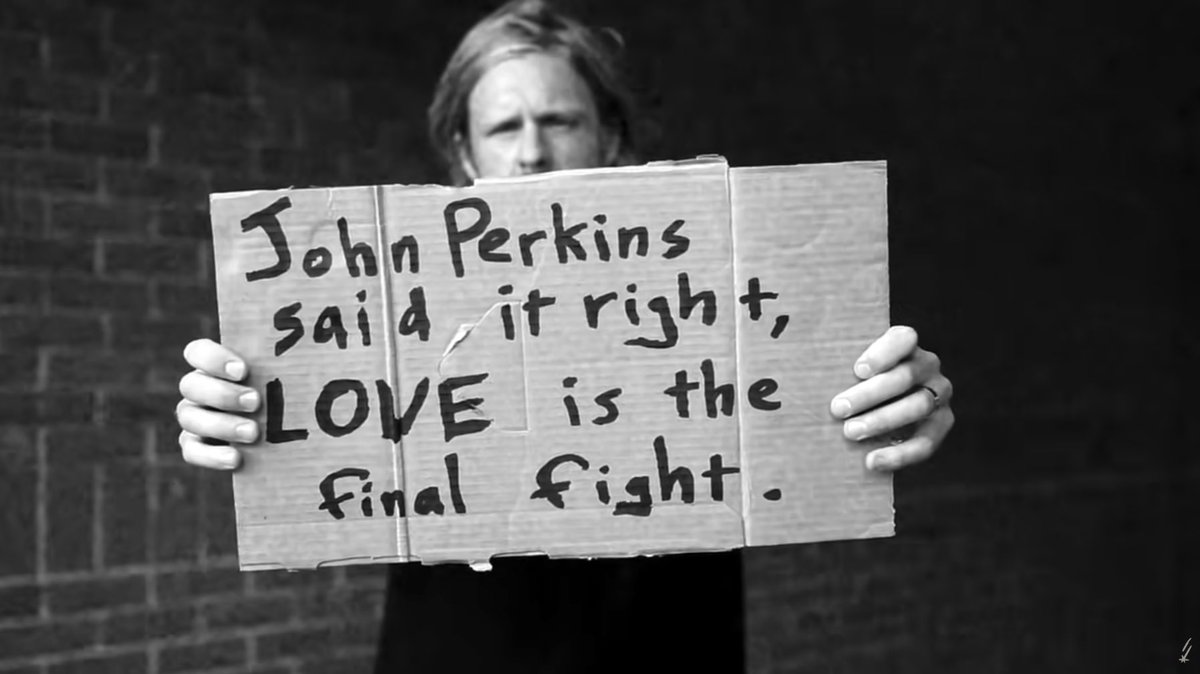 John Perkins
said it right,
LOVE is the
final fight.